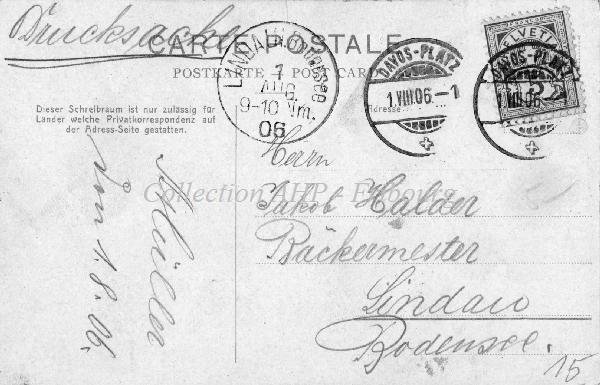 Drucksache
CARTE POSTALE
POSTKARTE POST CARD
Dieser Schreibraum ist nur zulässig für
Länder welche Privatkorrespondenz auf
der Adress-Seite gestatten.
LINDAU
1
AUG
9-10 Vm.
06
DAVOS-PLATZ
1.VIII.06.-1
DAVOS-PLATZ
1.VIII.06.
HELVETIA
Adresse
Herrn
Jakob Halder
Bäckermester
Lindau
Bodensee.
Müller
vom 1.8.06.
Collection AHP - Europe
15